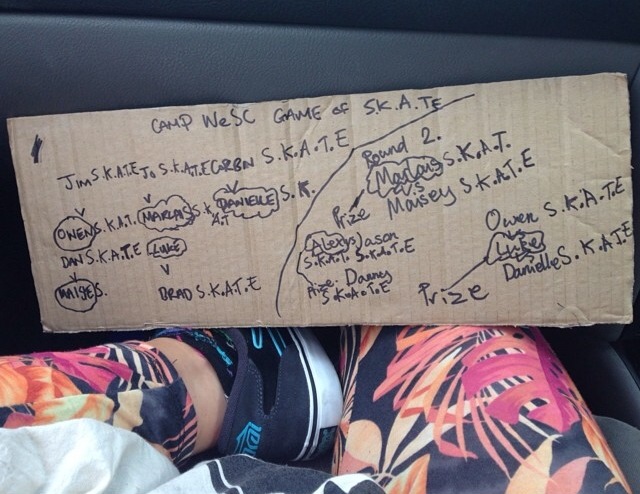 CAMP WeSC GAME OF S.K.A.TE
JIM S.K.A.T.E JO S.K.A.T.E CORBIN S.K.A.T.E
V V V
OWEN S.K.A.T. MARCUS S.K.A.T DANIELLE S.K.
DAN S.K.A.T.E LUKE
V V
MAISE S. BRAD S.K.A.T.E
Round 2.
S.K.A.T.
V.S
Prize Maisey S.K.A.T.E
Alexys Jason
S.K.A.T. S.K.A.T.E
Prize: Danny
S.K.A.T.E
Owen S.K.A.T.E
LUKE
Danielle S.K.A.T.E
Prize